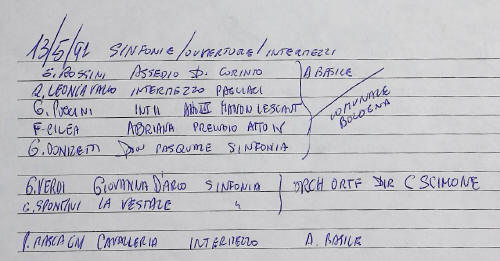 13/5/91 SINFONIE/OUVERTURE/INTERMEZZI
G. ROSSINI ASSEDIO D. CORINTO A BASILE
R. LEONCAVALLO INTERMEZZO PAGLIACI
G. PUCCINI INT II ATTO III MANON LESCAUT COMUNALE BOLOGNA
F. CILEA ADRIANA PRELUDIO ATTO IV
G. DONIZETTI DON PASQUALE SINFONIA
G. VERDI GIOVANNA D'ARCO SINFONIA ORCH ORTF DIR C SCIMONE
G. SPONTINI LA VESTALE "
P. MASCAGNI CAVALLERIA INTERMEZZO A. BASILE